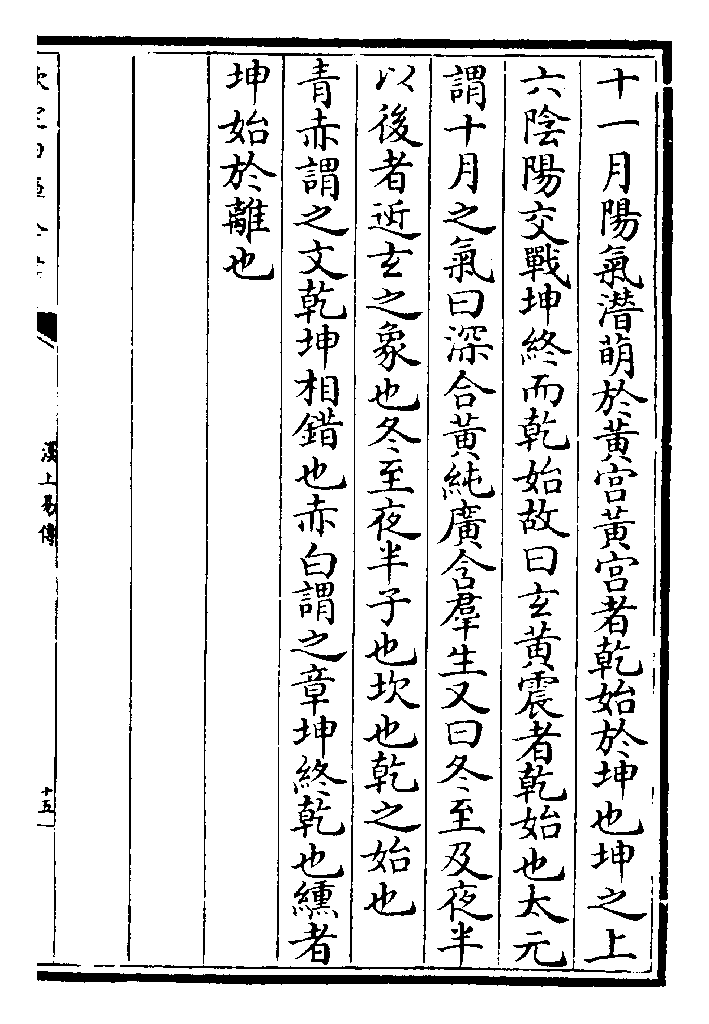 十一月陽氣潛萌於黃宫黃宫者乾始於坤也坤之上
六陰陽交戰坤終而乾始故曰玄黃震者乾始也太元
謂十月之氣曰深合黃純廣含羣生又曰冬至及夜半
以後者近玄之象也冬至夜半子也坎也乾之始也
青赤謂之文乾坤相錯也赤白謂之章坤終乾也纁者
坤始於離也
漢上易傳
十五